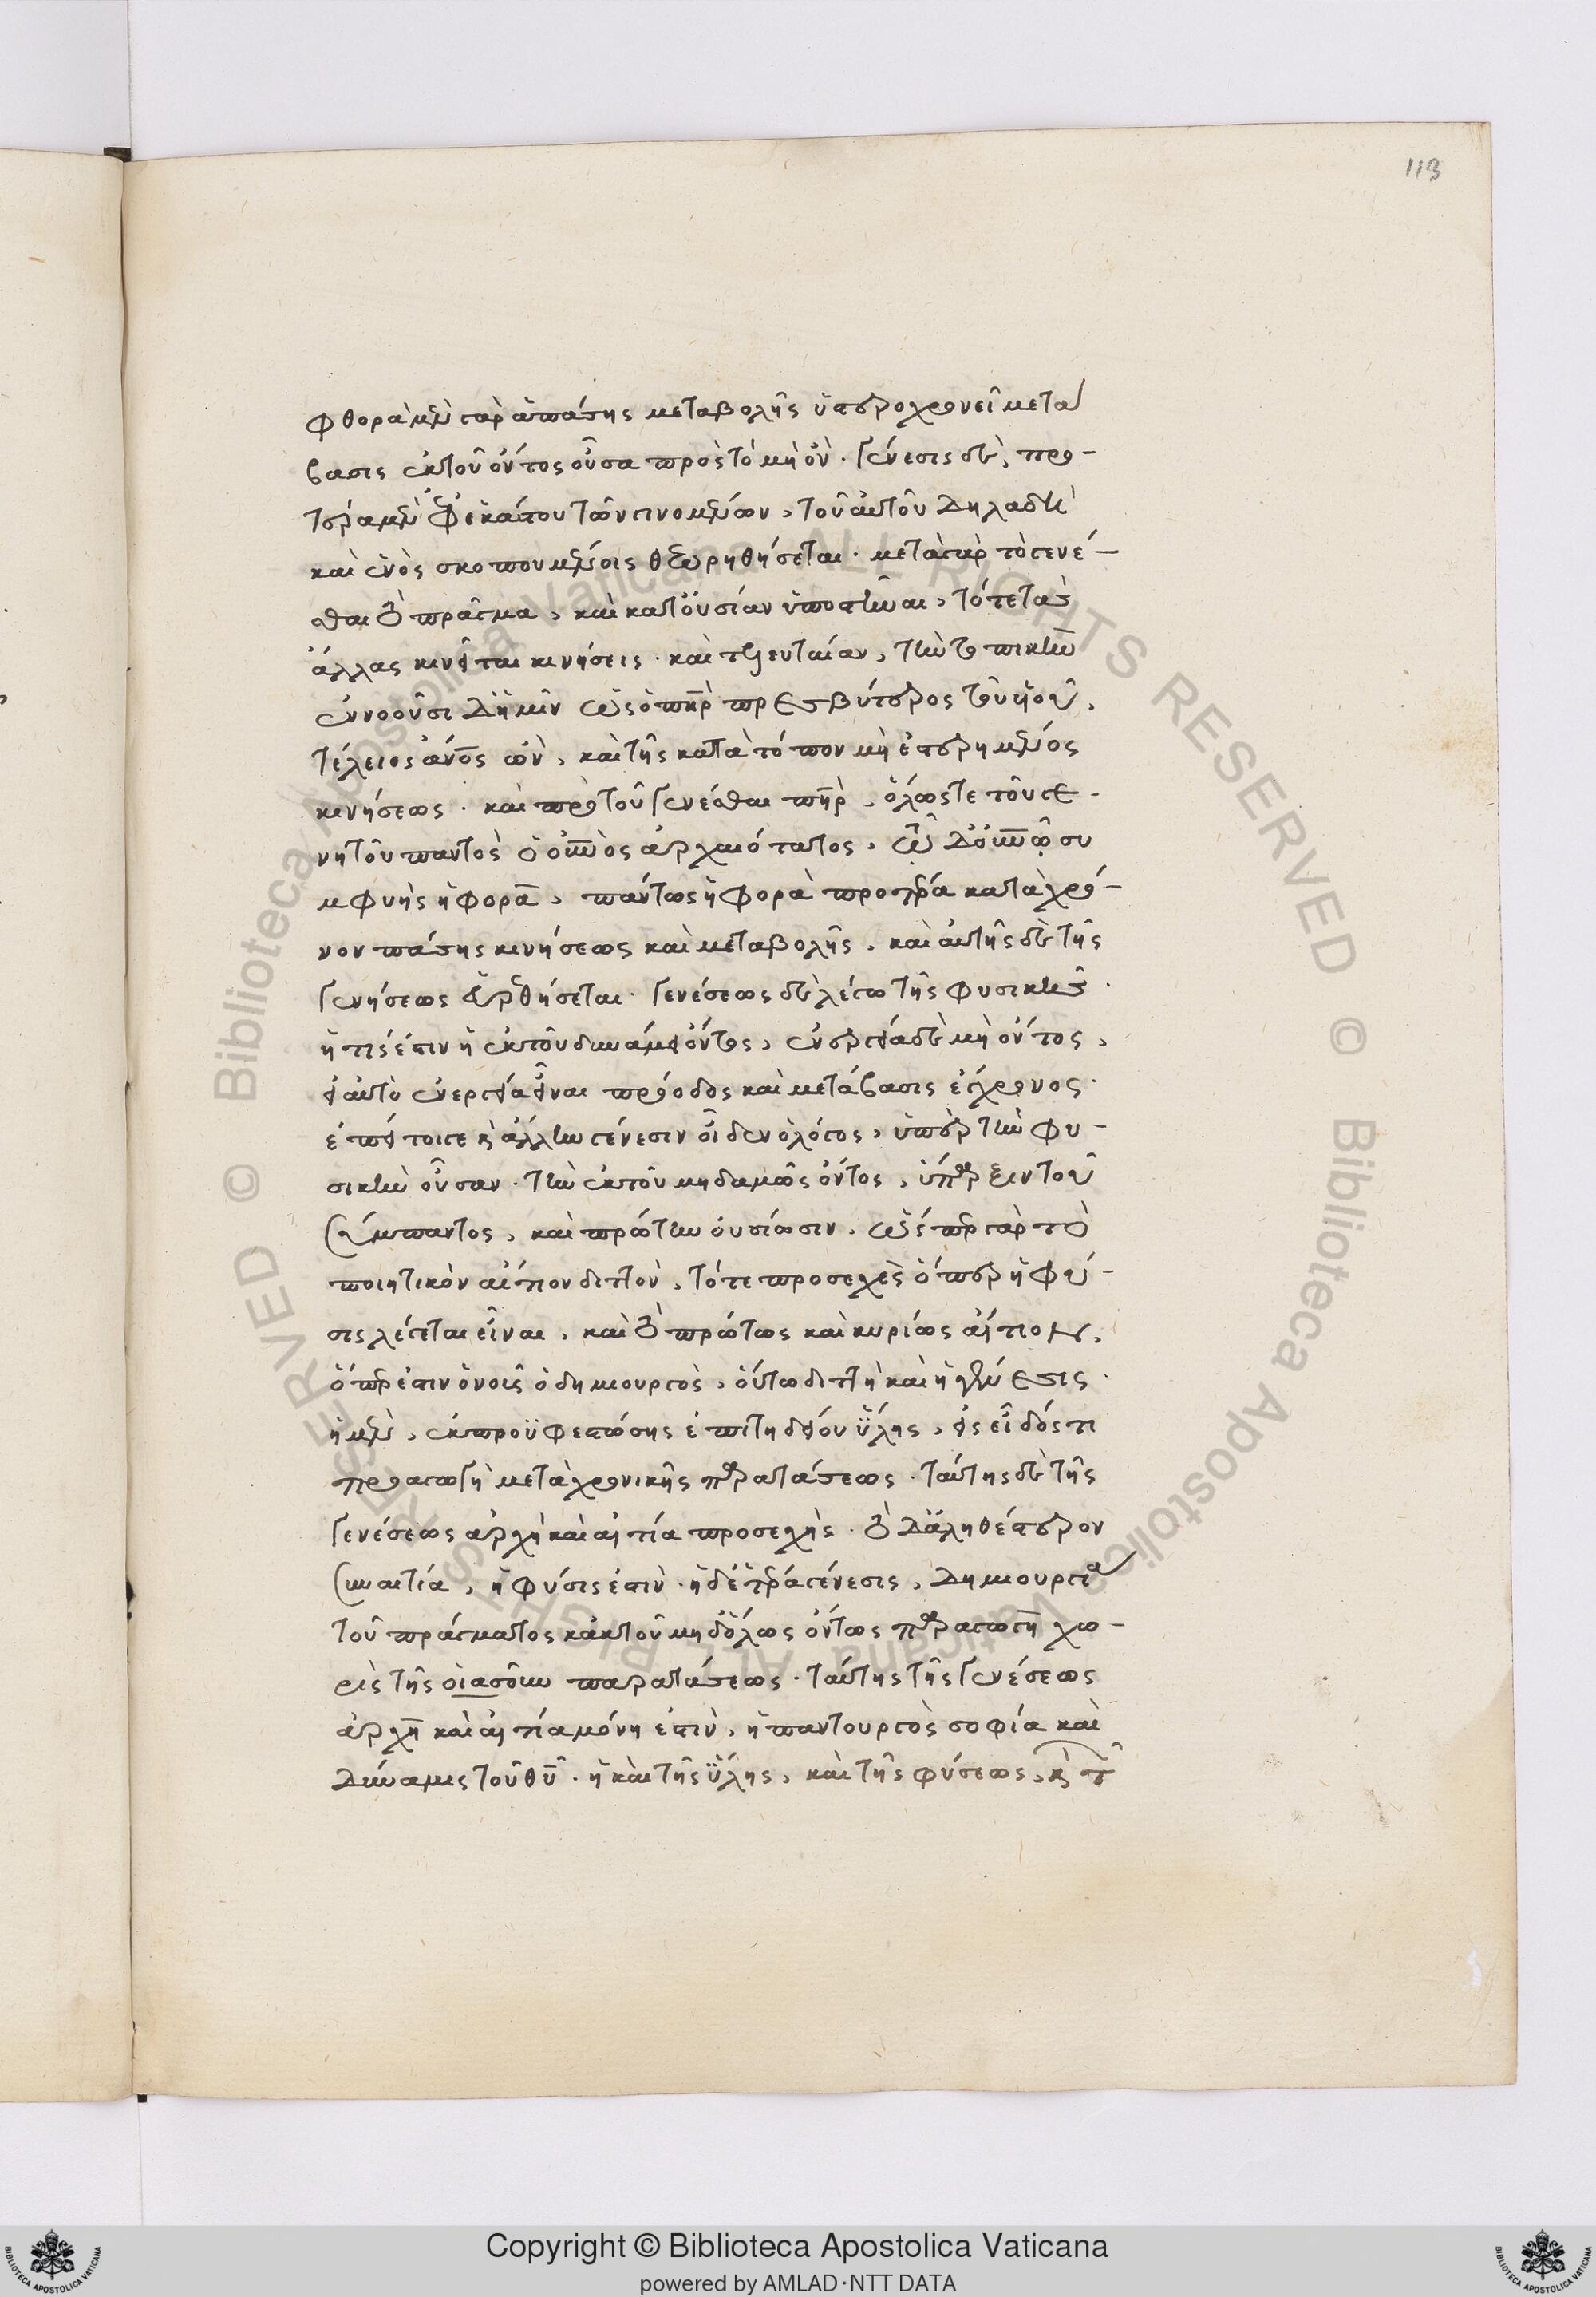 113
φθορὰ μὲν γὰρ ἁπάσης μεταβολῆς ὑστεροχρονεῖ μετά
βασις ἐκ τοῦ ὄντος οὖσα πρὸς τὸ μὴ ὄν. γένεσις δὲ, προ-
τέρα μὲν ἐφ' ἑκάστου τῶν γινομένων, τοῦ αὐτοῦ δηλαδὴ
καὶ ἑνὸς σκοπουμένοις θεωρηθήσεται. μετὰ γὰρ τὸ γενέ-
σθαι τὸ πρᾶγμα, καὶ κατ' οὐσίαν ὑποστῆναι, τότε τὰς
ἄλλας κινεῖται κινήσεις. καὶ τελευταίαν, τὴν τοπικὴν
ἐννοοῦσι δ' ἡμῖν ὡς ὁ πηρ πρεσβύτερος τοῦ υἱοῦ,
τέλειος ἀνος ὢν, καὶ τῆς κατὰ τόπον μὴ ἐστερημένος
κινήσεως. καὶ πρὸ τοῦ γενέσθαι πηρ, ὅλως τε τοῦ γε-
νητοῦ παντὸς ὁ οὐνος ἀρχαιότατος, ᾧ δ' οὐνῷ συ
μφυὴς ἡ φορὰ, πάντως ἡ φορὰ προτέρα κατὰ χρό-
νον πάσης κινήσεως καὶ μεταβολῆς, καὶ αὐτῆς δὲ τῆς
γενήσεως εὑρεθήσεται. γενέσεως δὲ λέγω τῆς φυσικῆς.
ἥτις ἐστὶν ἡ ἐκ τοῦ δυνάμει ὄντος, ἐνεργείᾳ δὲ μὴ ὄντος,
εἰς αὐτὸ ἐνεργείᾳ εἶναι πρόοδος καὶ μετάβασις ἔγχρονος.
ἐπεί τοί γε κ ἄλλην γένεσιν οἶδεν ὁ λόγος, ὑπὲρ τὴν φυ-
σικὴν οὖσαν. τὴν ἐκ τοῦ μηδαμῶς ὄντος, ὕπαρξιν τοῦ
σύμπαντος, καὶ πρώτην οὐσίωσιν. ὥσπερ γὰρ τὸ
ποιητικὸν αἴτιον διττὸν, τό τε προσεχὲς ὅπερ ἡ φύ-
σις λέγεται εἶναι, καὶ τὸ πρώτως καὶ κυρίως αἴτιον,
ὅπερ ἐστὶν ὁ νοῦς ὁ δημιουργὸς, οὕτω διττὴ καὶ ἡ γένεσις.
ἡ μὲν, ἐκ προϋφεστώσης ἐπιτηδείου ὕλης, εἰς εἶδός τι
προαγωγὴ μετὰ χρονικῆς παρατάσεως. ταύτης δὲ τῆς
γενέσεως ἀρχὴ καὶ αἰτία προσεχὴς. τὸ δ' ἀληθέστερον
συναιτία, ἡ φύσις ἐστὶν. ἡ δ' ἑτέρα γένεσις, δημιουργία
τοῦ πράγματος κἀκ τοῦ μηδ' ὅλως ὄντος παραγωγὴ χω-
ρὶς τῆς οἱασοῦν παρατάσεως. ταύτης τῆς γενέσεως
ἀρχὴ καὶ αἰτία μόνη ἐστὶν, ἡ παντουργὸς σοφία καὶ
δύναμις τοῦ θυ. ἡ καὶ τῆς ὕλης, καὶ τῆς φύσεως, κ τ
Copyright © Biblioteca Apostolica Vaticana
powered by AMLAD·NTT DATA